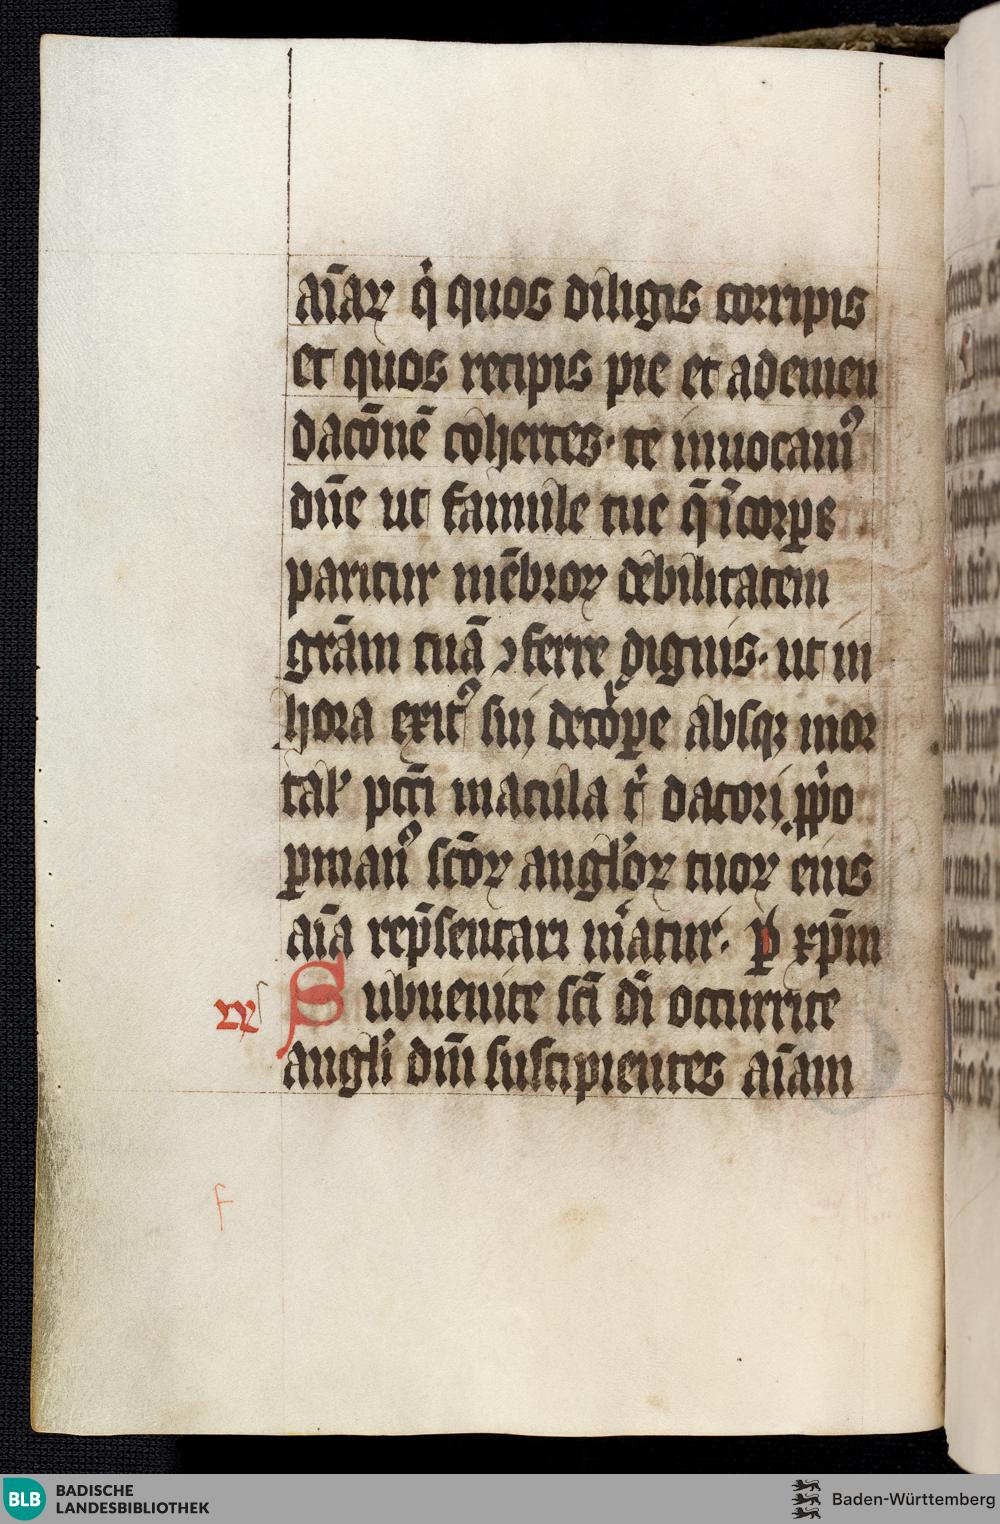 aīaꝝ qͥ quos diligis corripis
et quos recipis pie et ad emen
dacōnē cohertes · te inuocamꝰ
dn̄e ut famule tue q̄ ī corꝑe
patitur mēbroꝝ debilitatem
grām tuā ꝯferre digneris · ut in
hora exitꝰ sui de corꝑe absqꝫ mor
tal' pcc̄i macula tͥ datori ꝓprio
ꝑ manꝰ sc̄oꝝ angl'oꝝ tuoꝝ eius
aīa rep̄sentari m̄eatur · ꝑ xp̄m
rx Subuenite sc̄i dī occurrite
angl'i dn̄i suscipientes aīam
f
BLB BADISCHE
LANDESBIBLIOTHEK
Baden-Württemberg